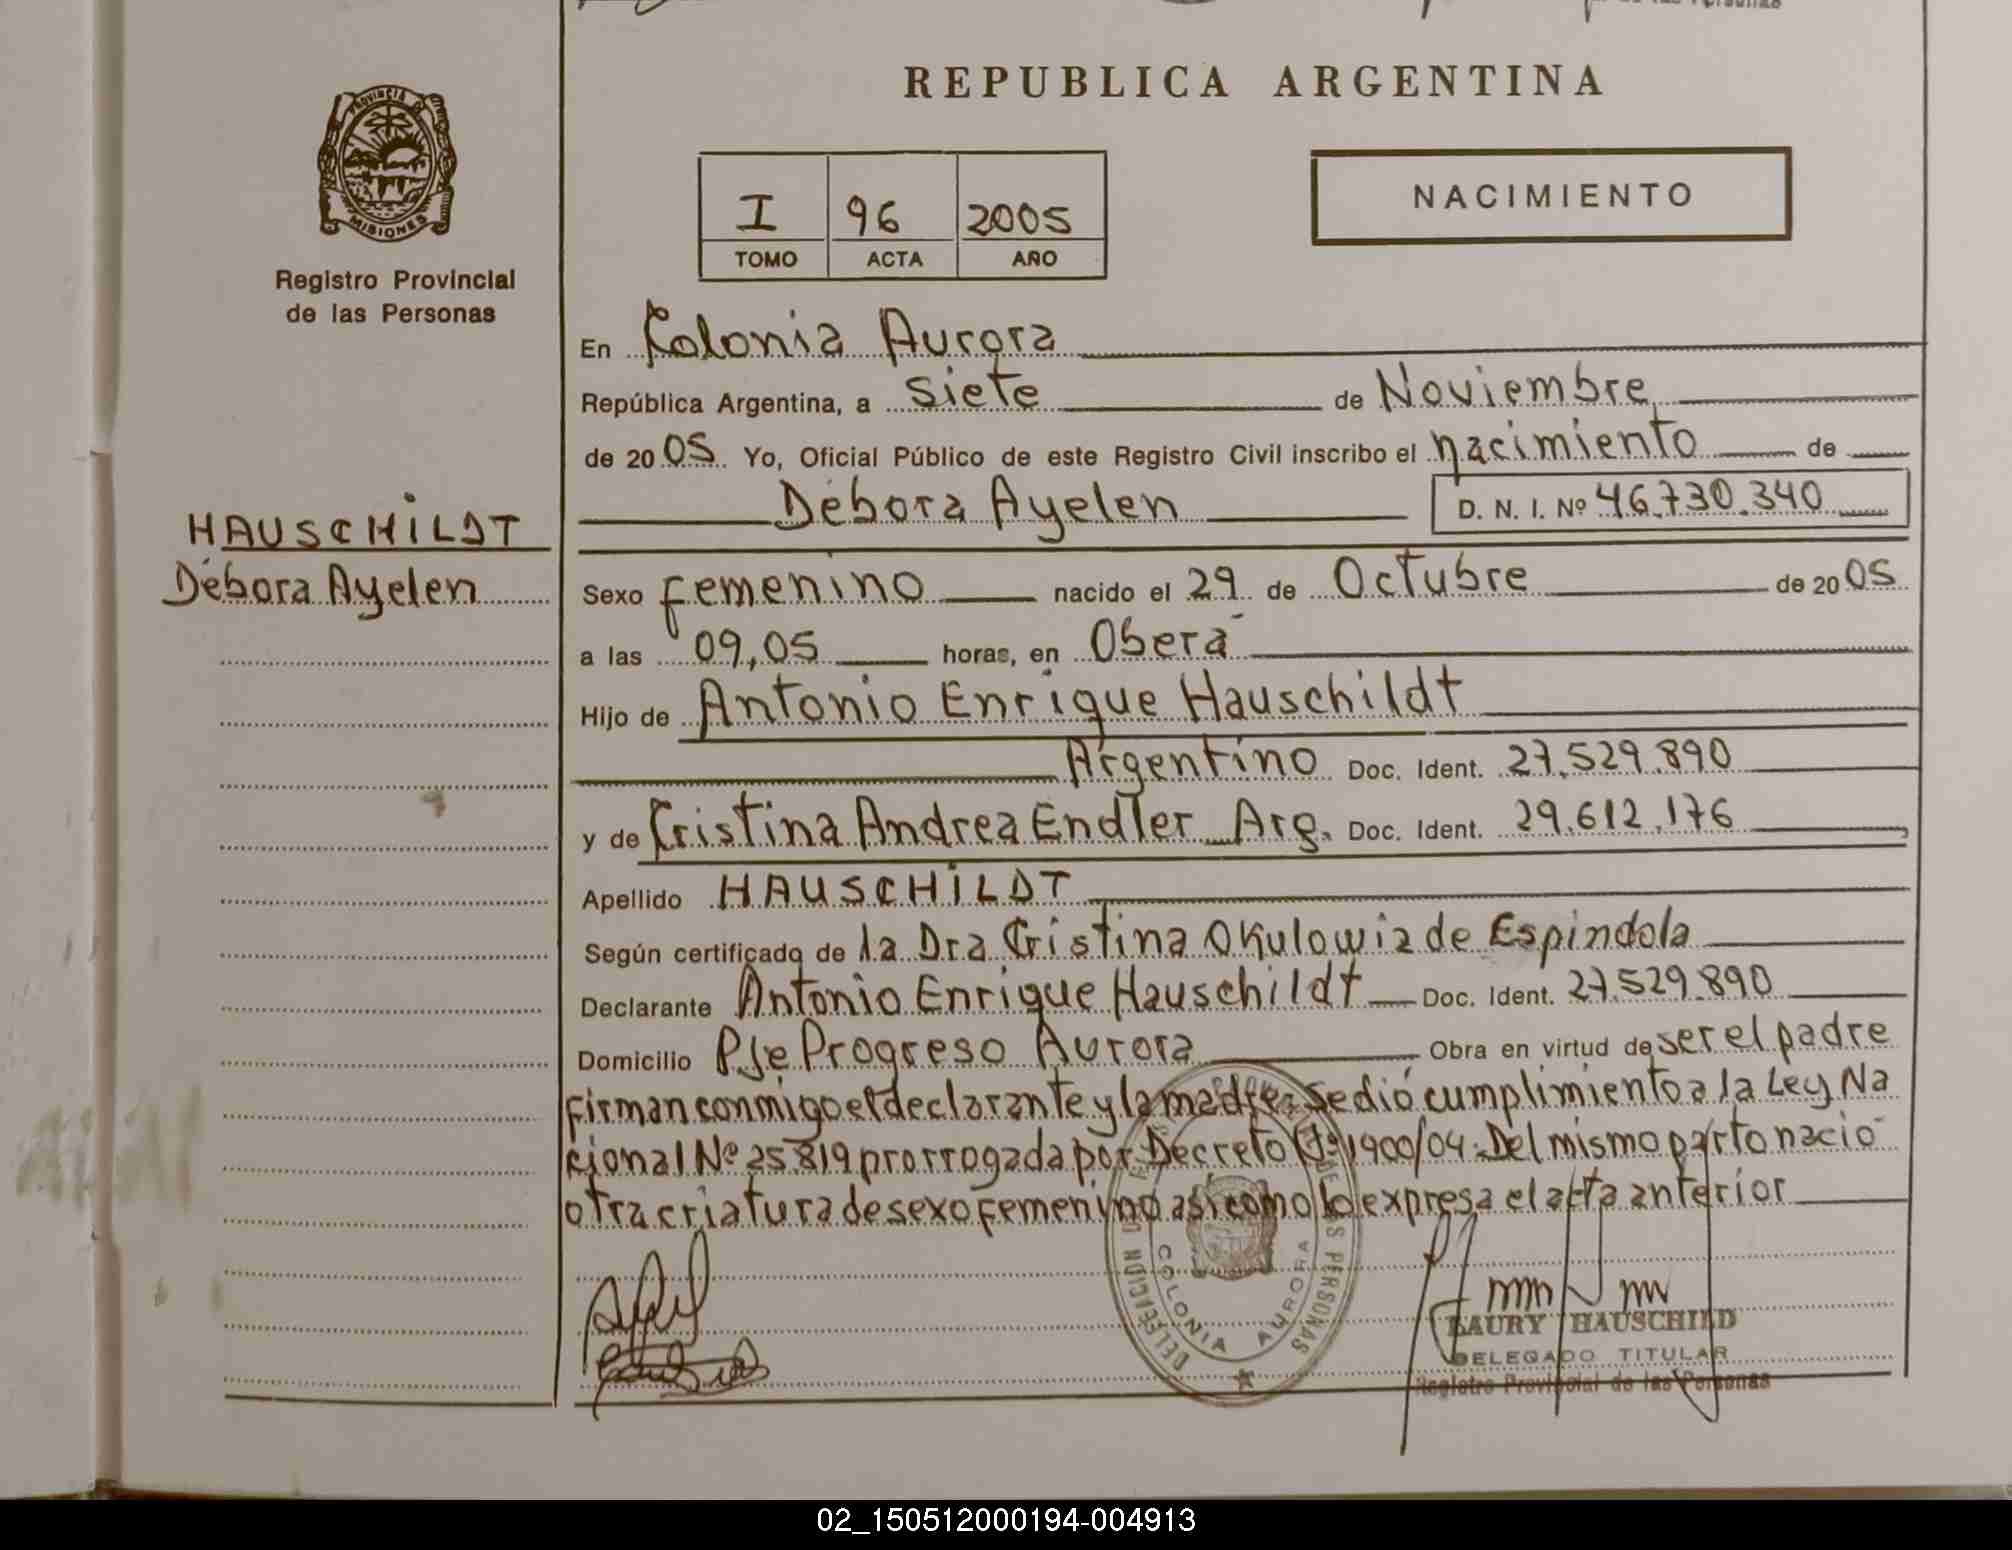 REPUBLICA ARGENTINA
PROVINCIA DE
MISIONES
Registro Provincial
de las Personas
I 96 2005
TOMO ACTA AÑO
NACIMIENTO
En Colonia Aurora
República Argentina, a siete de Noviembre
de 2005 Yo, Oficial Público de este Registro Civil inscribo el nacimiento de
Débora Ayelen D. N. I. Nº 46.730.340
HAUSCHILDT
Débora Ayelen
Sexo femenino nacido el 29 de Octubre de 2005
a las 09,05 horas, en Oberá
Hijo de Antonio Enrique Hauschildt
Argentino Doc. Ident. 27.529.890
y de Cristina Andrea Endler Arg. Doc. Ident. 29.612.176
Apellido HAUSCHILDT
Según certificado de la Dra Cristina Okulowiz de Espindola
Declarante Antonio Enrique Hauschildt Doc. Ident. 27.529.890
Domicilio Pje Progreso Aurora Obra en virtud de ser el padre
firman conmigo el declarante y la madre. Se dió cumplimiento a la Ley Na
cional Nº 25.819 prorrogada por Decreto Nº 1900/04. Del mismo parto nació
otra criatura de sexo femenino así como lo expresa el acta anterior
COLONIA AURORA
LAURY HAUSCHILD
DELEGADO TITULAR
Registro Provincial de las Personas
02_150512000194-004913